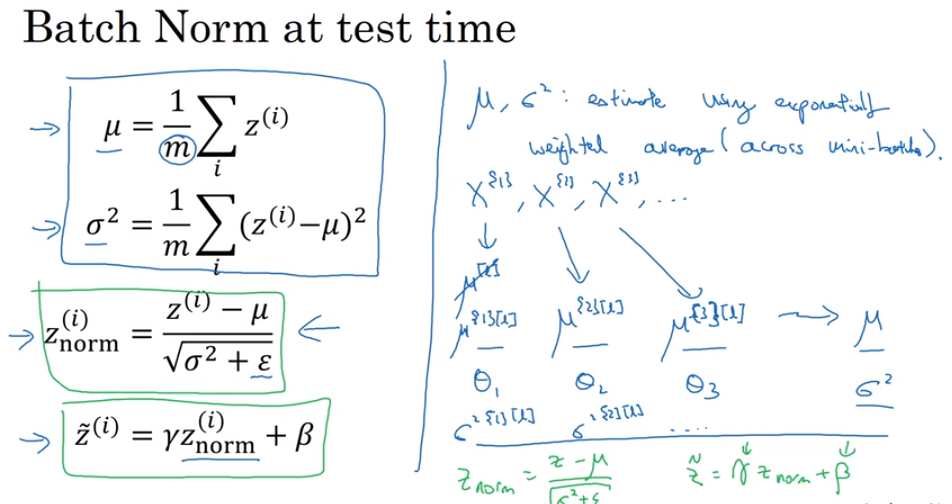 Batch Norm at test time
μ = 1/m ∑_i z^(i)
σ² = 1/m ∑_i (z^(i)−μ)²
z_norm^(i) = (z^(i) − μ)/√(σ² + ε)
z̃^(i) = γz_norm^(i) + β
μ, σ² : estimate using exponentially
weighted average (across mini-batches).
X^{1}, X^{2}, X^{3}, ...
μ^{1}[l] μ^{2}[l] μ^{3}[l] → μ
θ₁ θ₂ θ₃ σ²
σ²^{1}[l] σ²^{2}[l] ....
z_norm = (z − μ)/√(σ²+ε) z̃ = γ z_norm + β